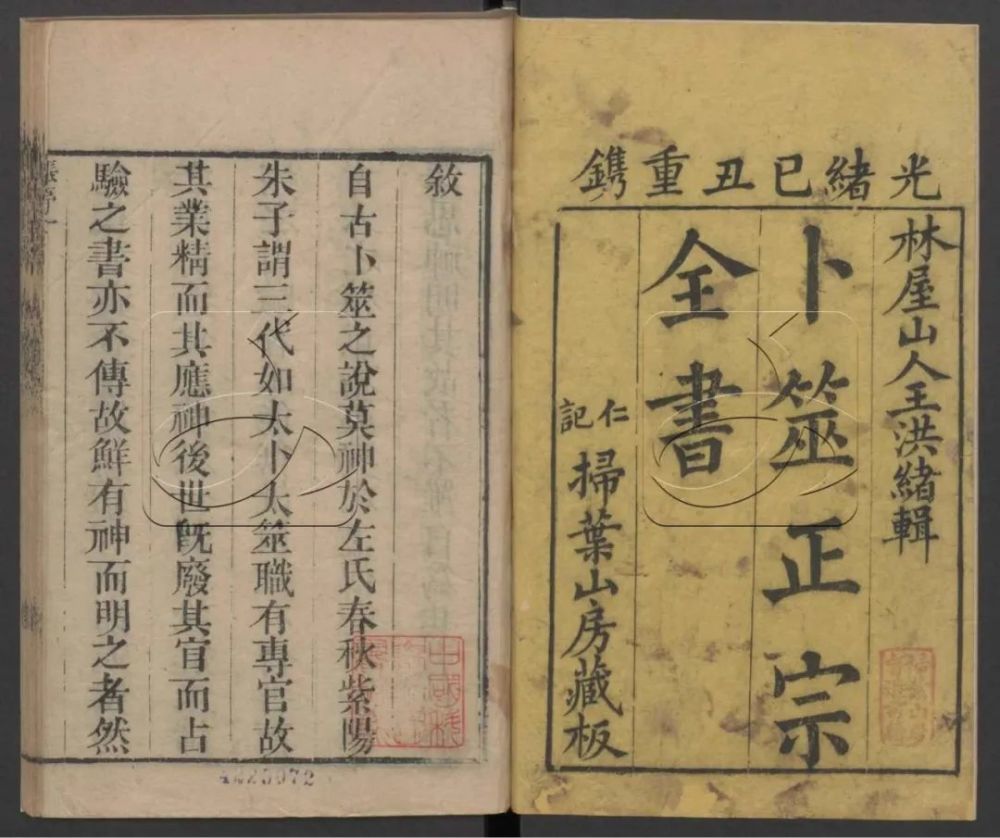 光緒己丑重鐫
林屋山人王洪緒輯
卜筮正宗
全書
仁記
掃葉山房藏板
敘
自古卜筮之說莫神於左氏春秋紫陽
朱子謂三代如太卜太筮職有專官故
其業精而其應神後世旣廢其官而占
驗之書亦不傳故鮮有神而明之者然
4225972